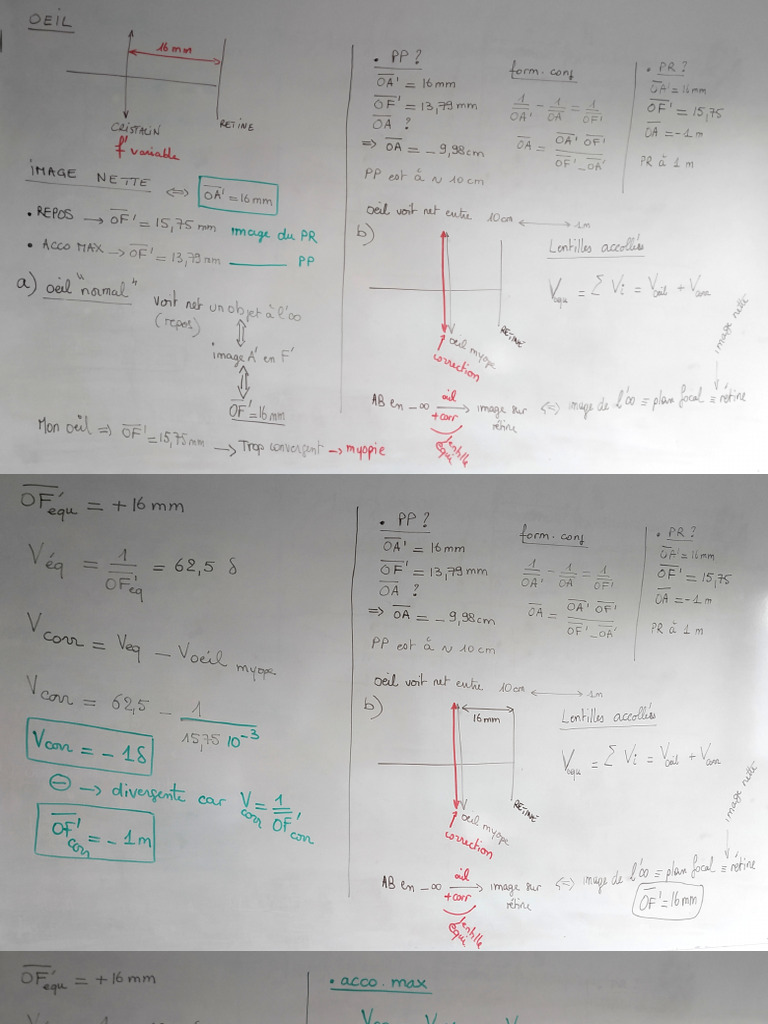 OEIL
16 mm
CRISTALIN
RETINE
f' variable
IMAGE NETTE <=> OA' = 16 mm
• REPOS → OF' = 15,75 mm image du PR
• ACCO MAX → OF' = 13,79 mm ——— PP
a) oeil "normal"
voit net un objet à l'∞
(repos)
image A' en F'
OF' = 16 mm
Mon oeil => OF' = 15,75 mm → Trop convergent → myopie
• PP ?
OA' = 16 mm
OF' = 13,79 mm
OA ?
=> OA = - 9,98 cm
PP est à ~ 10 cm
form. conj
1/OA' - 1/OA = 1/OF'
OA = OA' OF' / OF' - OA'
• PR ?
OA' = 16 mm
OF' = 15,75
OA = -1 m
PR à 1 m
oeil voit net entre 10 cm ↔ 1 m
b)
RETINE
oeil myope
correction
Lentilles accollées
Vequ = Σ Vi = Voeil + Vcorr
image nette
AB en -∞ oeil + corr → image sur rétine <=> image de l'∞ ≡ plan focal ≡ rétine
lentille equi
OF'equ = + 16 mm
Véq = 1/OF'éq = 62,5 δ
Vcorr = Veq - Voeil myope
Vcorr = 62,5 - 1/15,75 10⁻³
Vcorr = - 1 δ
⊖ → divergente car Vcorr = 1/OF'corr
OF'corr = - 1 m
• PP ?
OA' = 16 mm
OF' = 13,79 mm
OA ?
=> OA = - 9,98 cm
PP est à ~ 10 cm
form. conj
1/OA' - 1/OA = 1/OF'
OA = OA' OF' / OF' - OA'
• PR ?
OA' = 16 mm
OF' = 15,75
OA = -1 m
PR à 1 m
oeil voit net entre 10 cm ↔ 1 m
b)
16 mm
RETINE
oeil myope
correction
Lentilles accollées
Vequ = Σ Vi = Voeil + Vcorr
image nette
AB en -∞ oeil + corr → image sur rétine <=> image de l'∞ ≡ plan focal ≡ rétine
lentille equi
OF' = 16 mm
OF'equ = + 16 mm
• acco. max